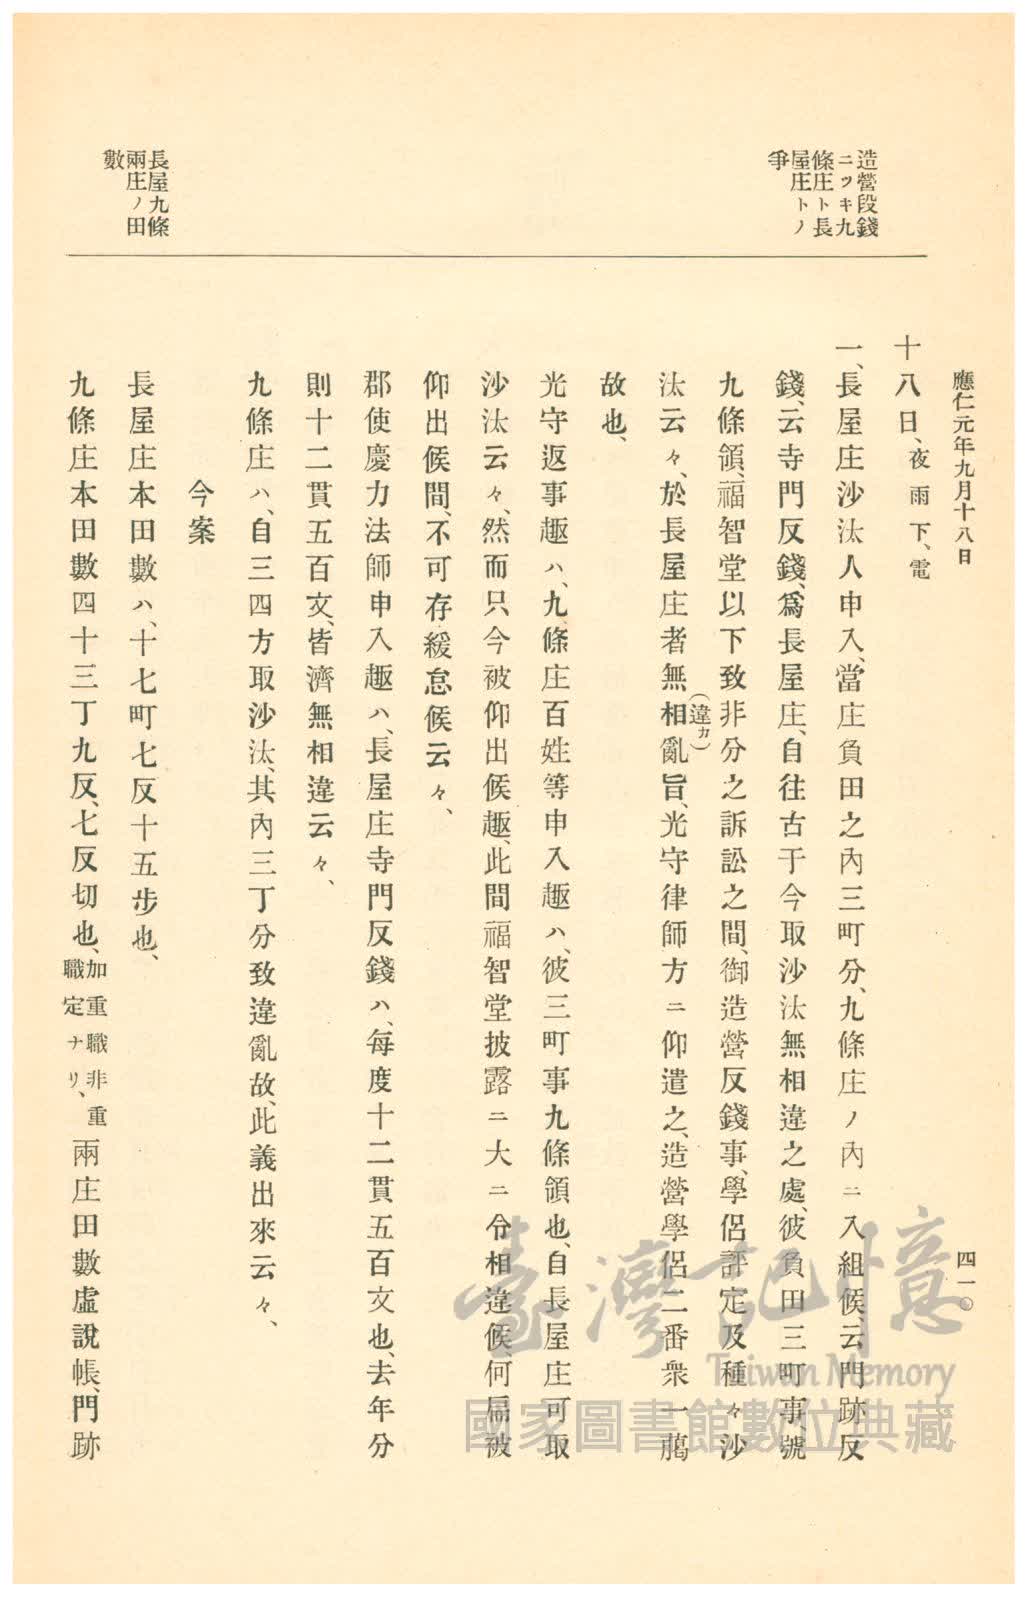 應仁元年九月十八日
四一〇
造營段錢
ニツキ九
條庄ト長
屋庄トノ
爭
長屋九條
兩庄ノ田
數
十八日、夜雨下、電
一、長屋庄沙汰人申入、當庄負田之內三町分、九條庄ノ內ニ入組候、云門跡反
錢、云寺門反錢、爲長屋庄、自往古于今取沙汰無相違之處、彼負田三町事、號
九條領、福智堂以下致非分之訴訟之間、御造營反錢事、學侶評定及種々沙
汰云々、於長屋庄者無相亂(違カ)旨、光守律師方ニ仰遣之、造營學侶二番衆一﨟
故也、
光守返事趣ハ、九條庄百姓等申入趣ハ、彼三町事九條領也、自長屋庄可取
沙汰云々、然而只今被仰出候趣、此間福智堂披露ニ大ニ令相違候、何扁被
仰出候間、不可存緩怠候云々、
郡使慶力法師申入趣ハ、長屋庄寺門反錢ハ、每度十二貫五百文也、去年分
則十二貫五百文、皆濟無相違云々、
九條庄ハ、自三四方取沙汰、其內三丁分致違亂故、此義出來云々、
今案
長屋庄本田數ハ、十七町七反十五步也、
九條庄本田數四十三丁九反、七反切也、加重職非重職定ナリ、兩庄田數虛說帳、門跡
臺灣記憶
Taiwan Memory
國家圖書館數位典藏